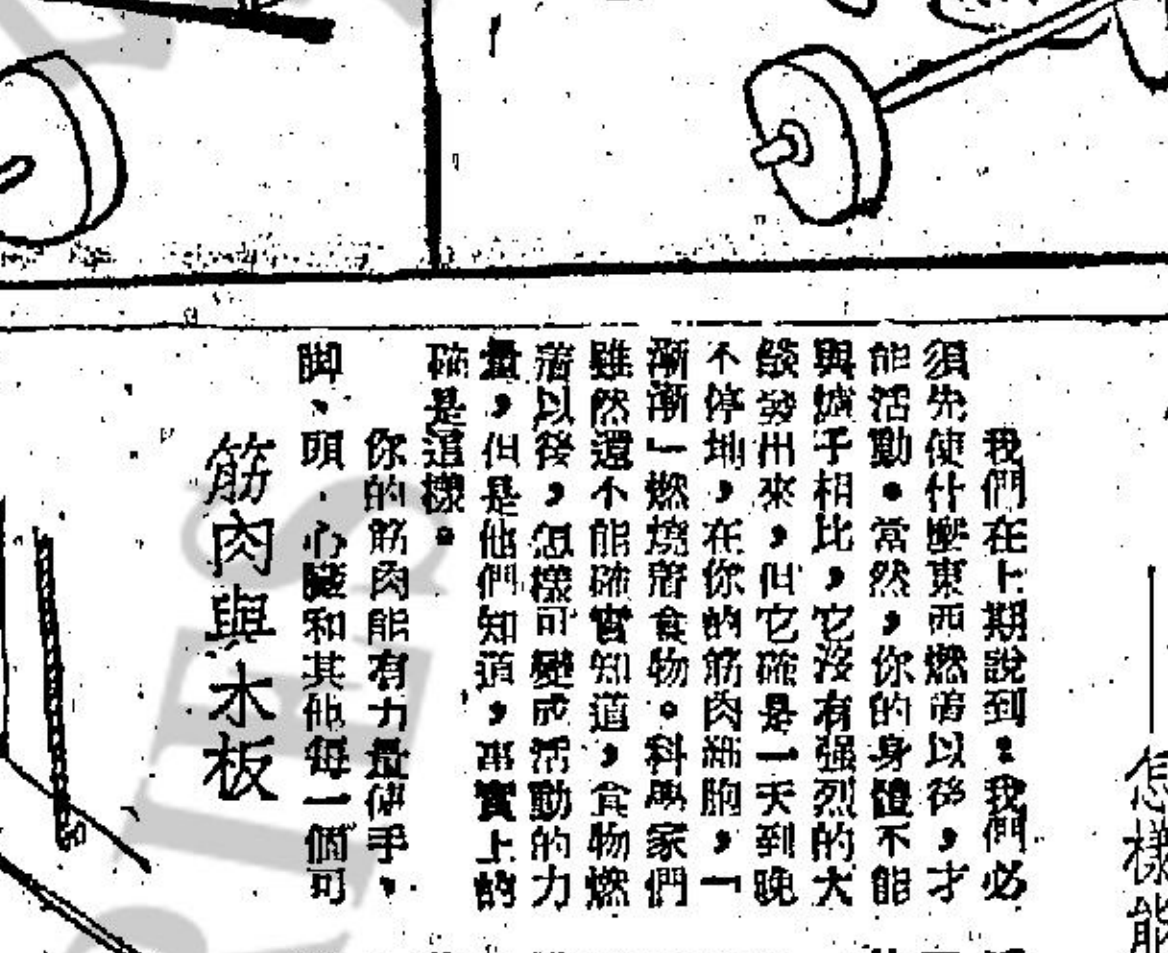 怎樣能
我們在上期說到：我們必
須先使什麼東西燃着以後，才
能活動。當然，你的身體不能
與爐子相比，它沒有强烈的大
燄發出來，但它確是一天到晚
不停地，在你的筋肉細胞，一
漸漸一燃燒着食物。科學家們
雖然還不能確實知道，食物燃
着以後，怎樣可變成活動的力
量，但是他們知道，事實上的
確是這樣。
你的筋肉能有力量使手，
脚、頭、心臟和其他每一個可
筋肉與木板